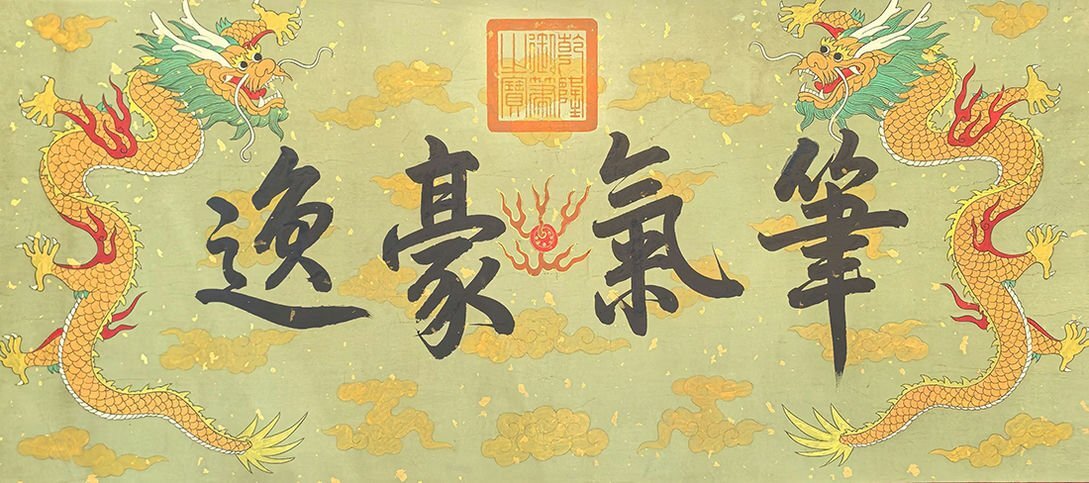 乾隆
御筆
之寶
筆氣豪逸